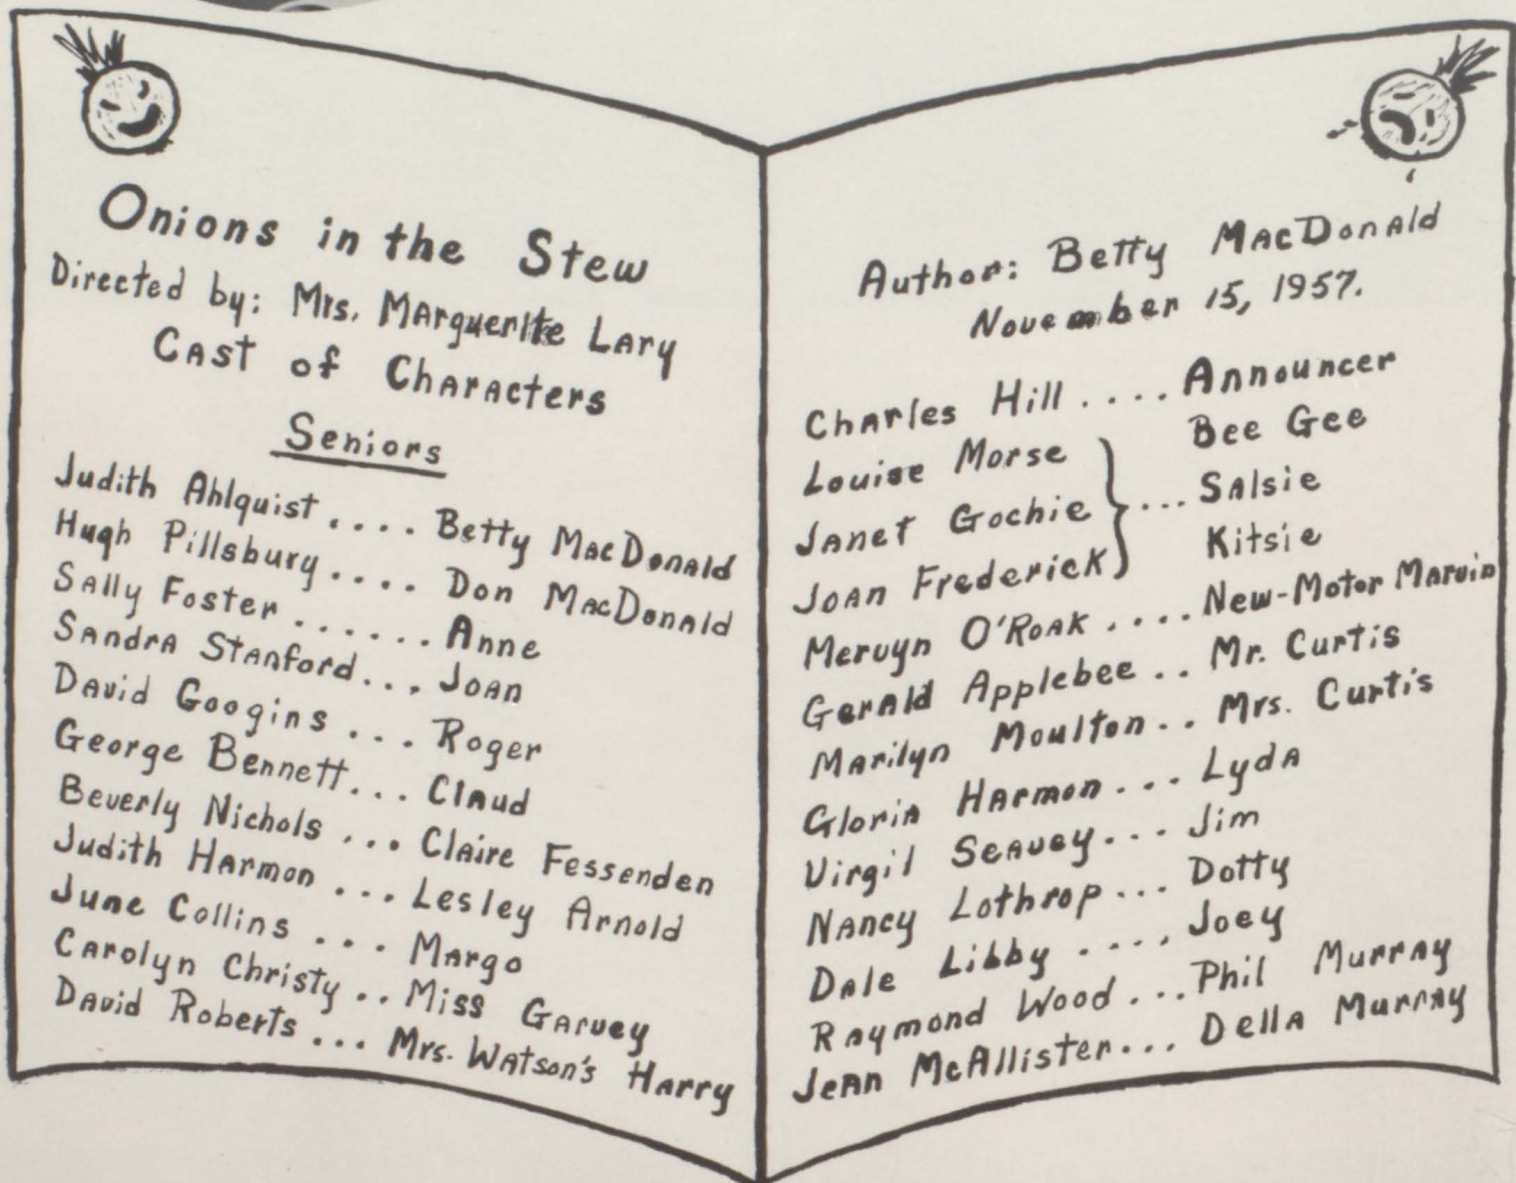 Onions in the Stew
Directed by: Mrs. Marguerite Lary
Cast of Characters
Seniors
Judith Ahlquist .... Betty MacDonald
Hugh Pillsbury .... Don MacDonald
Sally Foster ...... Anne
Sandra Stanford ... Joan
David Googins ... Roger
George Bennett ... Claud
Beverly Nichols ... Claire Fessenden
Judith Harmon ... Lesley Arnold
June Collins ... Margo
Carolyn Christy .. Miss Garvey
David Roberts ... Mrs. Watson's Harry
Author: Betty MacDonald
November 15, 1957.
Charles Hill .... Announcer
Louise Morse } Bee Gee
Janet Gochie } ... Salsie
Joan Frederick } Kitsie
Mervyn O'Roak .... New-Motor Marvin
Gerald Applebee .. Mr. Curtis
Marilyn Moulton .. Mrs. Curtis
Gloria Harmon ... Lyda
Virgil Seavey ... Jim
Nancy Lothrop ... Dotty
Dale Libby .... Joey
Raymond Wood ... Phil Murray
Jean McAllister ... Della Murray